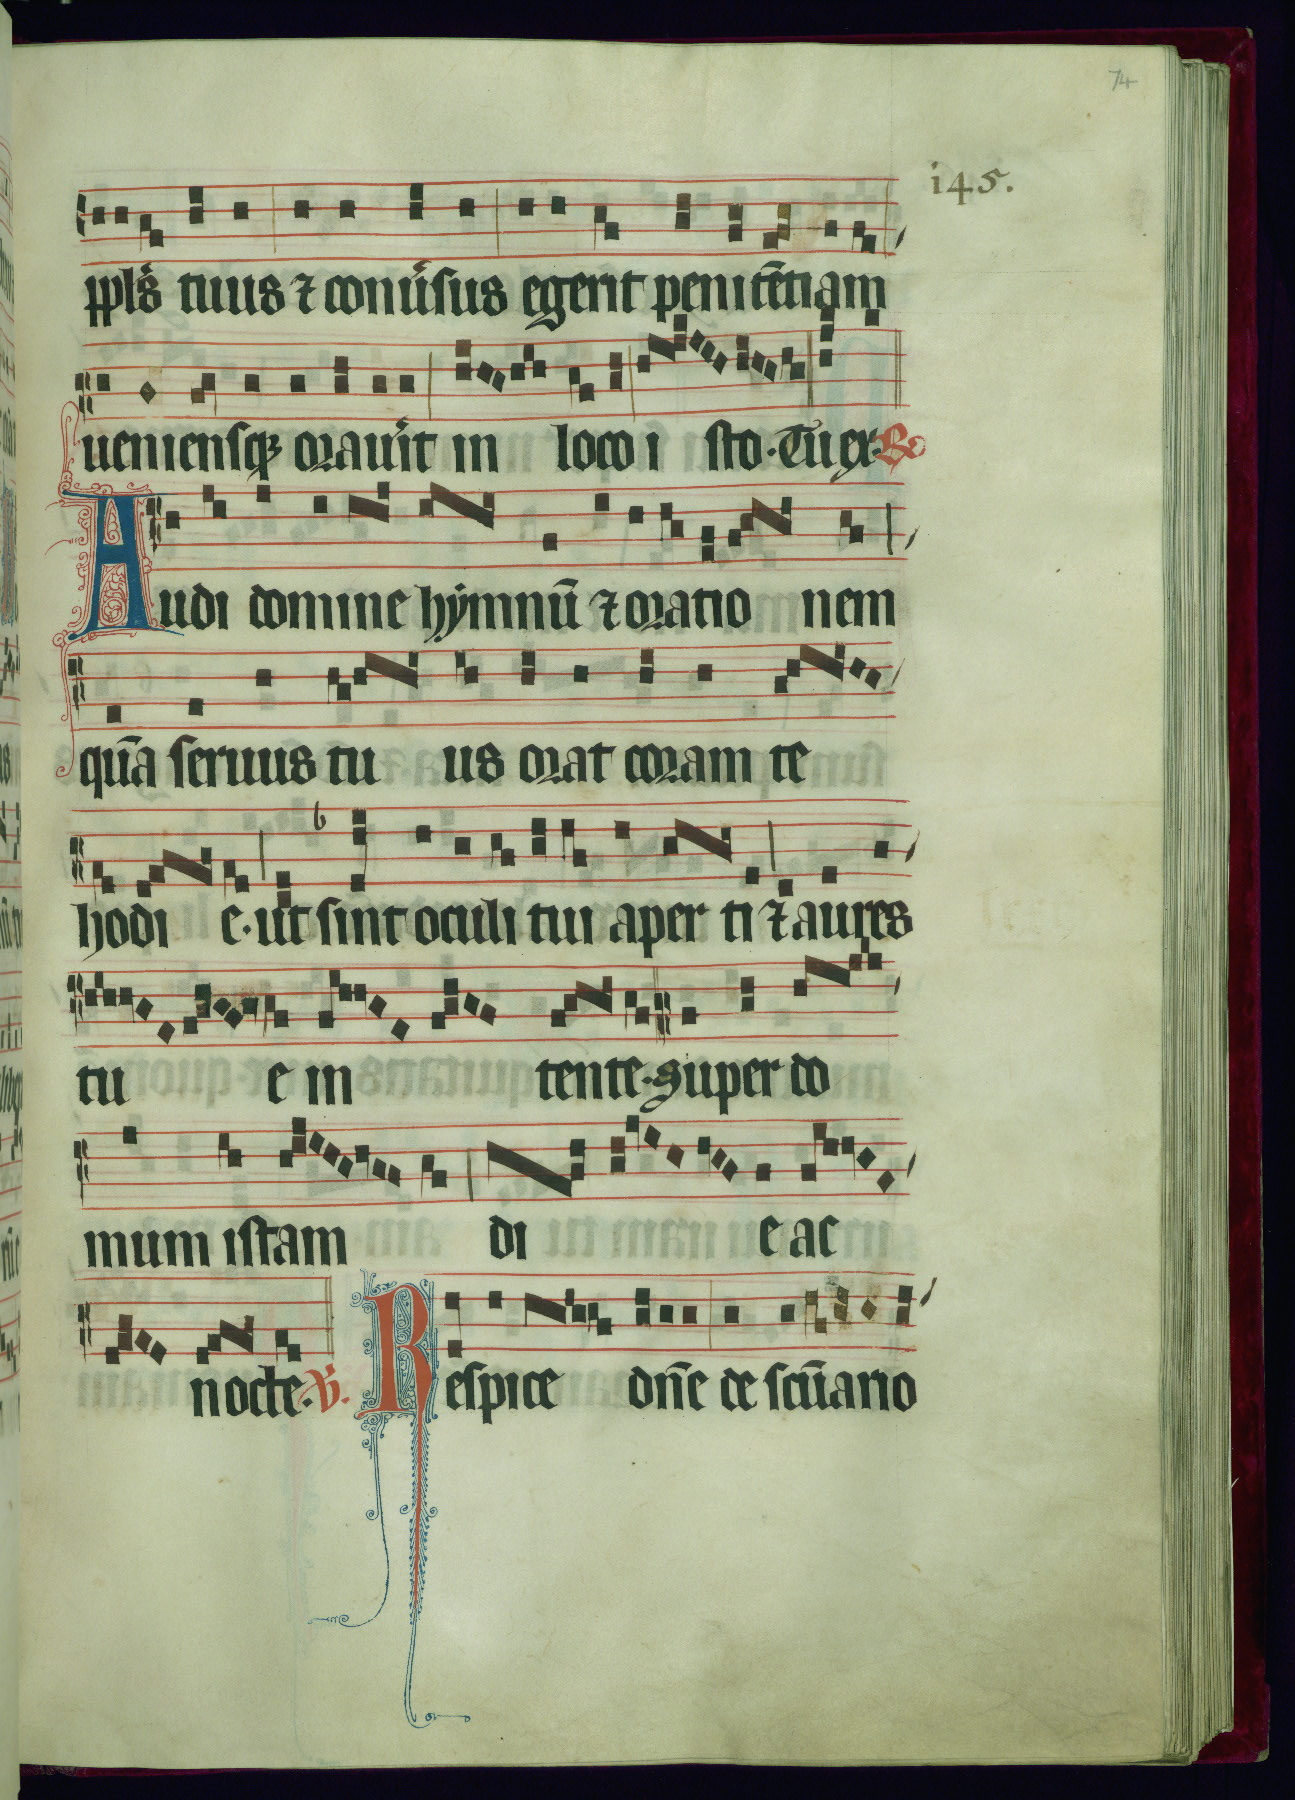 74
i45.
ppl̄s tuus ⁊ conu̾sus egerit penitētiam
ueniensqꝫ orau̾it in loco i sto. Tu ex. ℟
Audi domine hẏmnū ⁊ oratio nem
quā seruus tu us orat coram te
hodi e. ut sint oculi tui aper ti ⁊ aures
tu e in tente. Super do
mum istam di e ac
nocte. ℣. Respice dn̄e de scūario